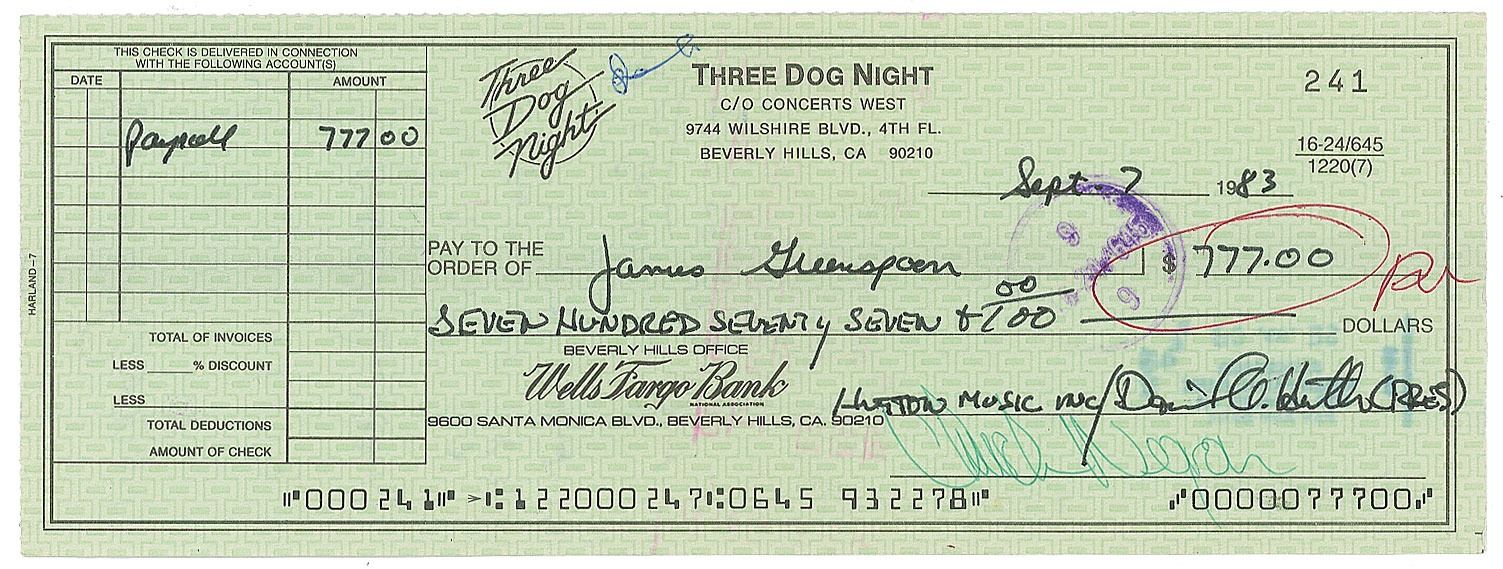 THIS CHECK IS DELIVERED IN CONNECTION
WITH THE FOLLOWING ACCOUNT(S)
DATE AMOUNT
Payroll 777 00
TOTAL OF INVOICES
LESS % DISCOUNT
LESS
TOTAL DEDUCTIONS
AMOUNT OF CHECK
HARLAND-7
Three
Dog
Night
THREE DOG NIGHT
C/O CONCERTS WEST
9744 WILSHIRE BLVD., 4TH FL.
BEVERLY HILLS, CA 90210
241
16-24/645
1220(7)
Sept. 7 1983
PAY TO THE
ORDER OF James Greenspoon $ 777.00
SEVEN HUNDRED SEVENTY SEVEN & 00/100 DOLLARS
BEVERLY HILLS OFFICE
Wells Fargo Bank
NATIONAL ASSOCIATION
9600 SANTA MONICA BLVD., BEVERLY HILLS, CA. 90210
HUTTON MUSIC INC/ (PRES)
Chuck Negron
⑈000241⑈ ⑆122000247⑆0645 932278⑈ ⑈0000077700⑈